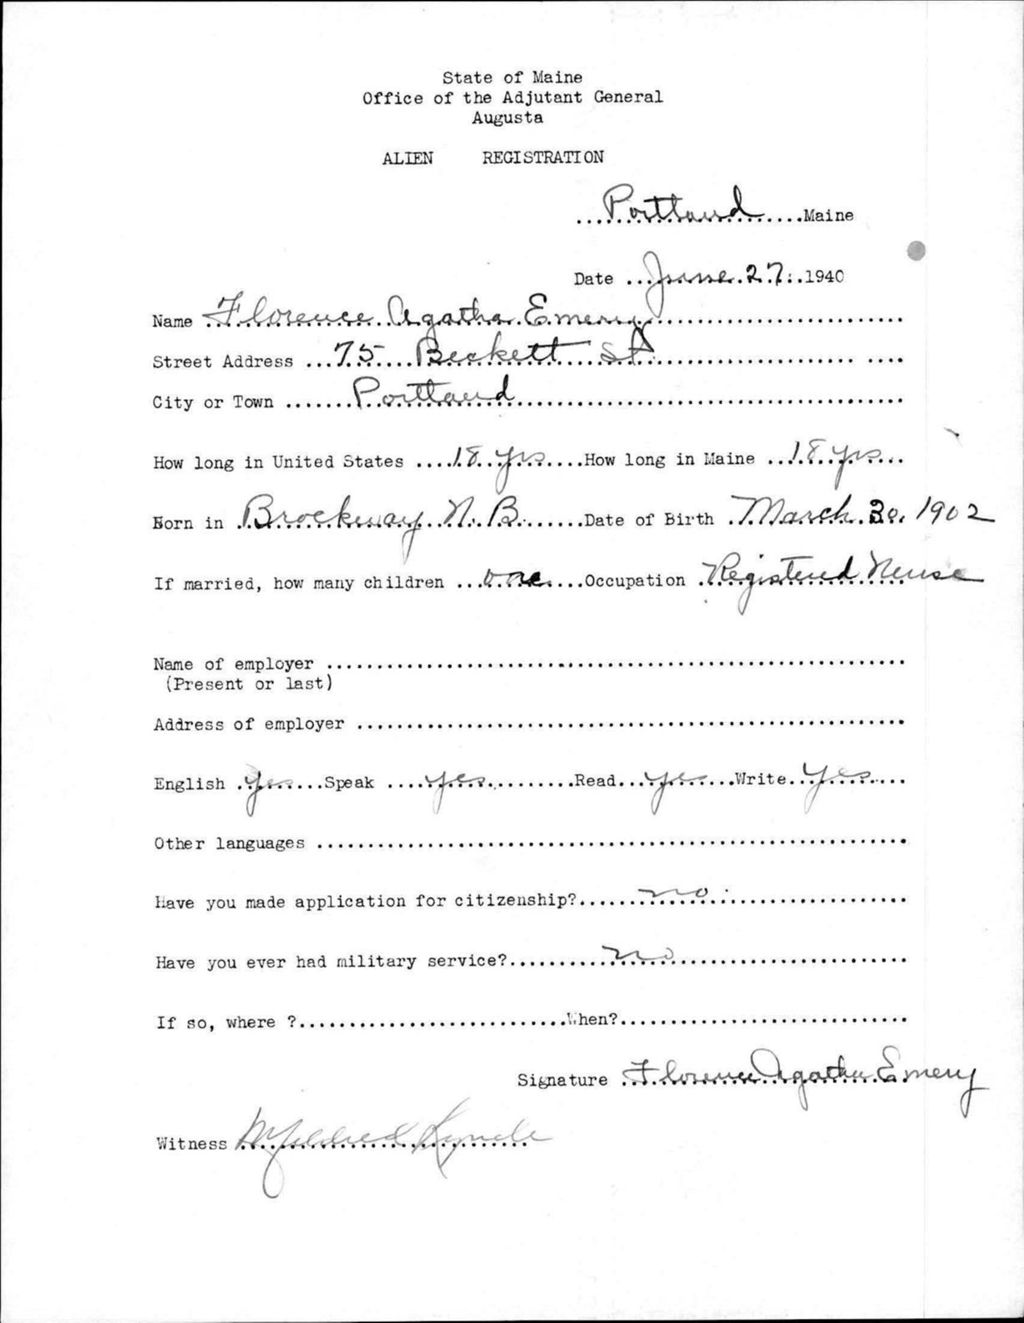 State of Maine
Office of the Adjutant General
Augusta
ALIEN REGISTRATION
...Portland...Maine
Date ...June 27...1940
Name ...Florence Agatha Emery...
Street Address ...75 Beckett St...
City or Town ...Portland...
How long in United States ...18 yrs...How long in Maine ...18 yrs...
Born in ...Brockway N.B....Date of Birth ...March 30, 1902
If married, how many children ...one...Occupation ...Registered Nurse
Name of employer ...
(Present or last)
Address of employer ...
English ...yes...Speak ...yes...Read...yes...Write...yes...
Other languages ...
Have you made application for citizenship?...no...
Have you ever had military service?...no...
If so, where ?...When?...
Signature ...Florence Agatha Emery
Witness Mildred